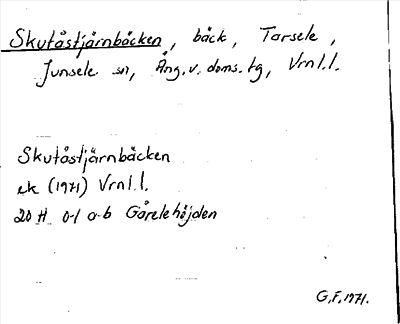 Skutåstjärnbäcken, bäck, Tarsele,
Junsele sn, Ång. v. doms. tg, Vrnl.l.
Skutåstjärnbäcken
ek (1971) Vrnl.l.
20 H 0-1 a-b Gårelehöjden
G.F. 1971.